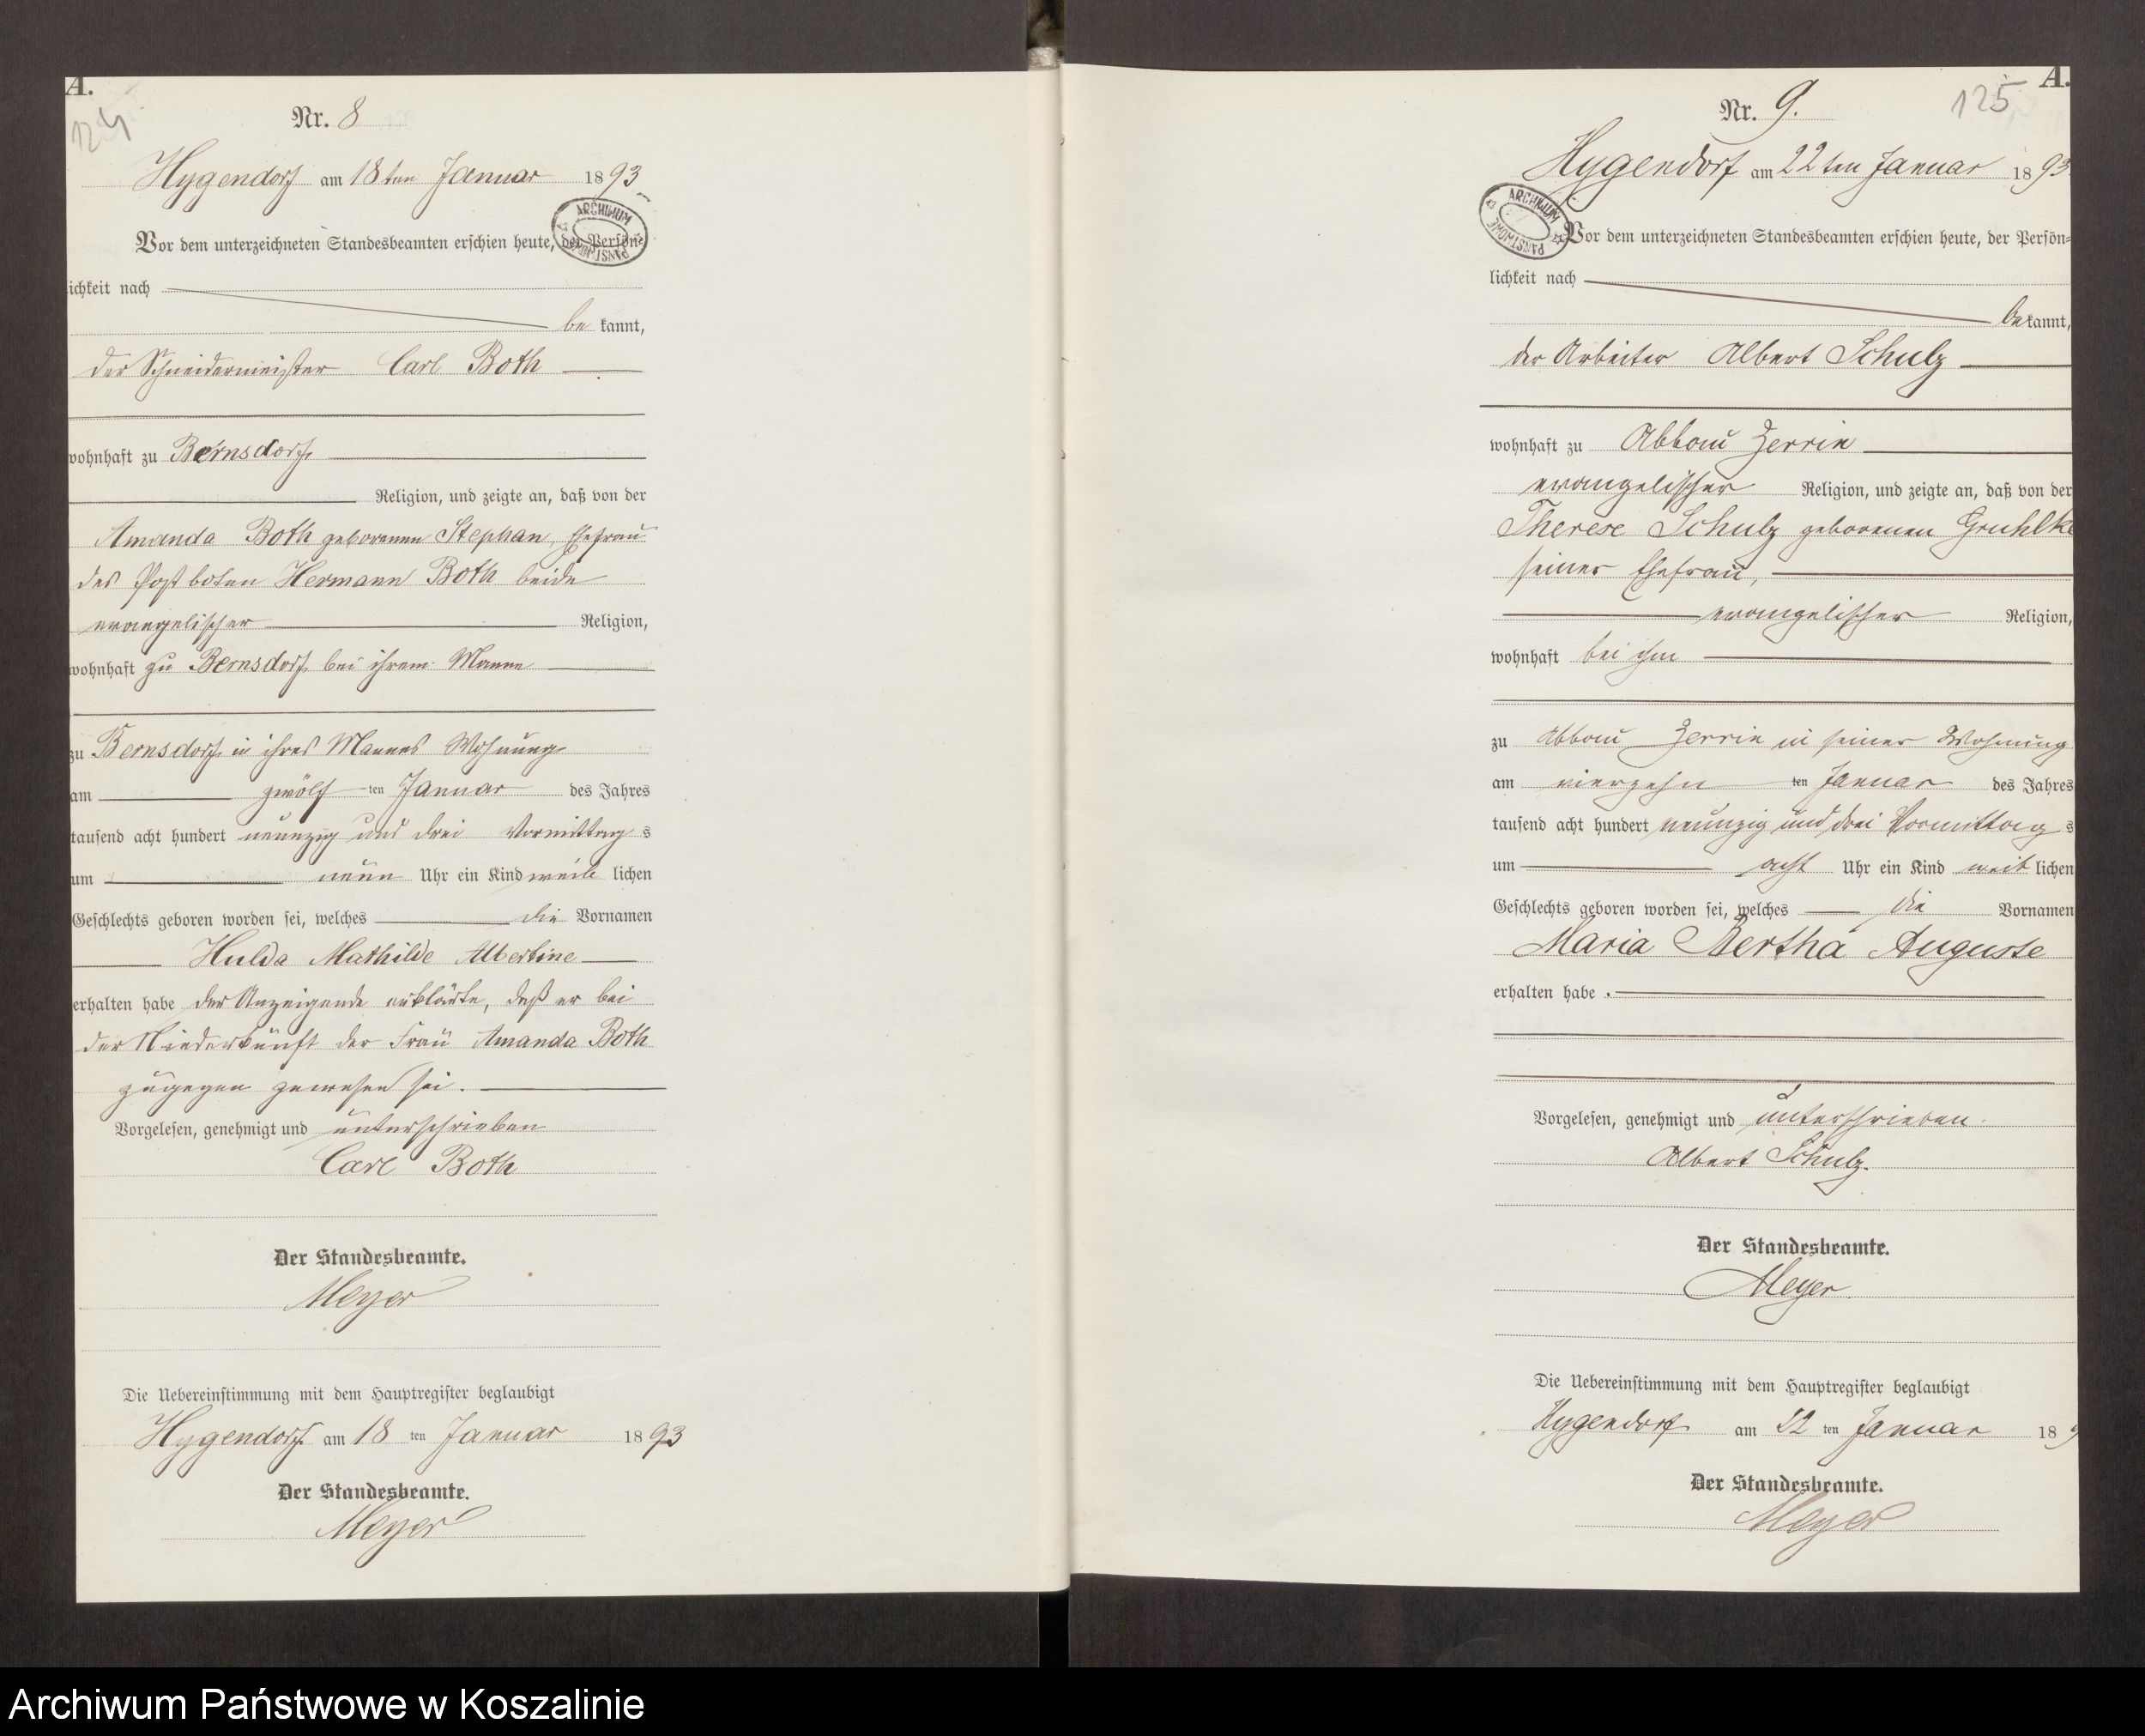 A.
124
Nr. 8
Hygendorf am 18ten Januar 1893
ARCHIWUM PAŃSTWOWE
Vor dem unterzeichneten Standesbeamten erschien heute, der Persön-
lichkeit nach
be kannt,
der Schneidermeister Carl Both
wohnhaft zu Bernsdorf
Religion, und zeigte an, daß von der
Amanda Both geborenen Stephan, Ehefrau
des Postboten Hermann Both beide
evangelischer Religion,
wohnhaft zu Bernsdorf bei ihrem Manne
zu Bernsdorf in ihres Mannes Wohnung
am zwölf ten Januar des Jahres
tausend acht hundert neunzig und drei Vormittag s
um neun Uhr ein Kind weib lichen
Geschlechts geboren worden sei, welches die Vornamen
Hulda Mathilde Albertine
erhalten habe der Anzeigende erklärte, daß er bei
der Niederkunft der Frau Amanda Both
zugegen gewesen sei.
Vorgelesen, genehmigt und unterschrieben
Carl Both
Der Standesbeamte.
Meyer
Die Uebereinstimmung mit dem Hauptregister beglaubigt
Hygendorf am 18 ten Januar 1893
Der Standesbeamte.
Meyer
A.
125
Nr. 9.
Hygendorf am 22ten Januar 1893
ARCHIWUM PAŃSTWOWE
Vor dem unterzeichneten Standesbeamten erschien heute, der Persön-
lichkeit nach
be kannt,
der Arbeiter Albert Schulz
wohnhaft zu Abbau Zerrin
evangelischer Religion, und zeigte an, daß von der
Therese Schulz geborenen Gruhlke
seiner Ehefrau,
evangelischer Religion,
wohnhaft bei ihm
zu Abbau Zerrin in seiner Wohnung
am vierzehn ten Januar des Jahres
tausend acht hundert neunzig und drei Vormittag s
um acht Uhr ein Kind weib lichen
Geschlechts geboren worden sei, welches die Vornamen
Maria Bertha Auguste
erhalten habe.
Vorgelesen, genehmigt und unterschrieben.
Albert Schulz.
Der Standesbeamte.
Meyer.
Die Uebereinstimmung mit dem Hauptregister beglaubigt
Hygendorf am 22 ten Januar 189
Der Standesbeamte.
Meyer
Archiwum Państwowe w Koszalinie